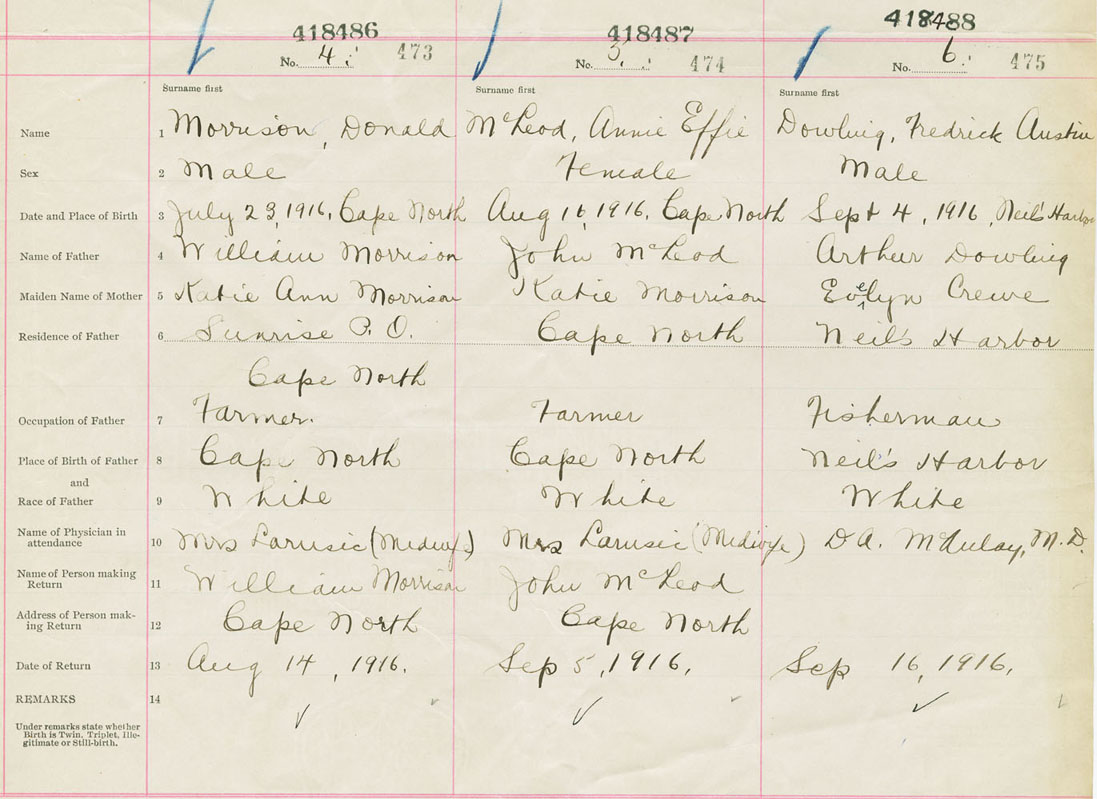 418486 418487 418488
No. 4. 473 No. 5. 474 No. 6. 475
Surname first Surname first Surname first
Name 1 Morrison, Donald McLeod, Annie Effie Dowling, Fredrick Austin
Sex 2 Male Female Male
Date and Place of Birth 3 July 23, 1916, Cape North Aug 16, 1916, Cape North Sept 4, 1916, Neil's Harbor
Name of Father 4 William Morrison John McLeod Arthur Dowling
Maiden Name of Mother 5 Katie Ann Morrison Katie Morrison Evelyn Crewe
Residence of Father 6 Sunrise P.O. Cape North Neil's Harbor
Cape North
Occupation of Father 7 Farmer. Farmer Fisherman
Place of Birth of Father 8 Cape North Cape North Neil's Harbor
and
Race of Father 9 White White White
Name of Physician in
attendance 10 Mrs Larusic (Midwife) Mrs Larusic (Midwife) D A. McAulay, M.D.
Name of Person making
Return 11 William Morrison John McLeod
Address of Person mak-
ing Return 12 Cape North Cape North
Date of Return 13 Aug 14, 1916. Sep 5, 1916. Sep 16, 1916.
REMARKS 14
Under remarks state whether
Birth is Twin. Triplet, Ille-
gitimate or Still-birth.